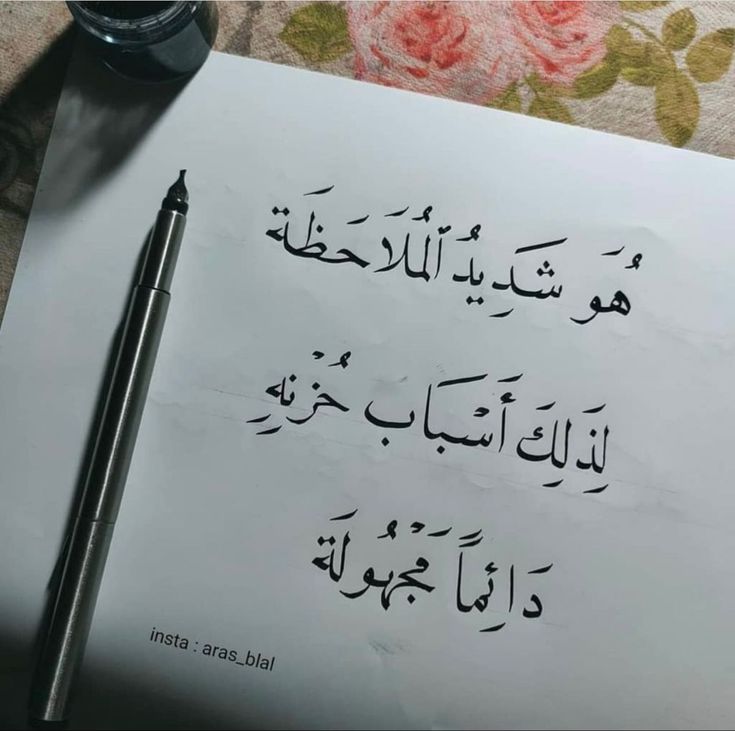 هُوَ شَدِيدُ ٱلْمُلَاحَظَة
لِذَلِكَ أَسْبَاب حُزْنِهِ
دَائِماً مَجْهُولَة
insta : aras_blal